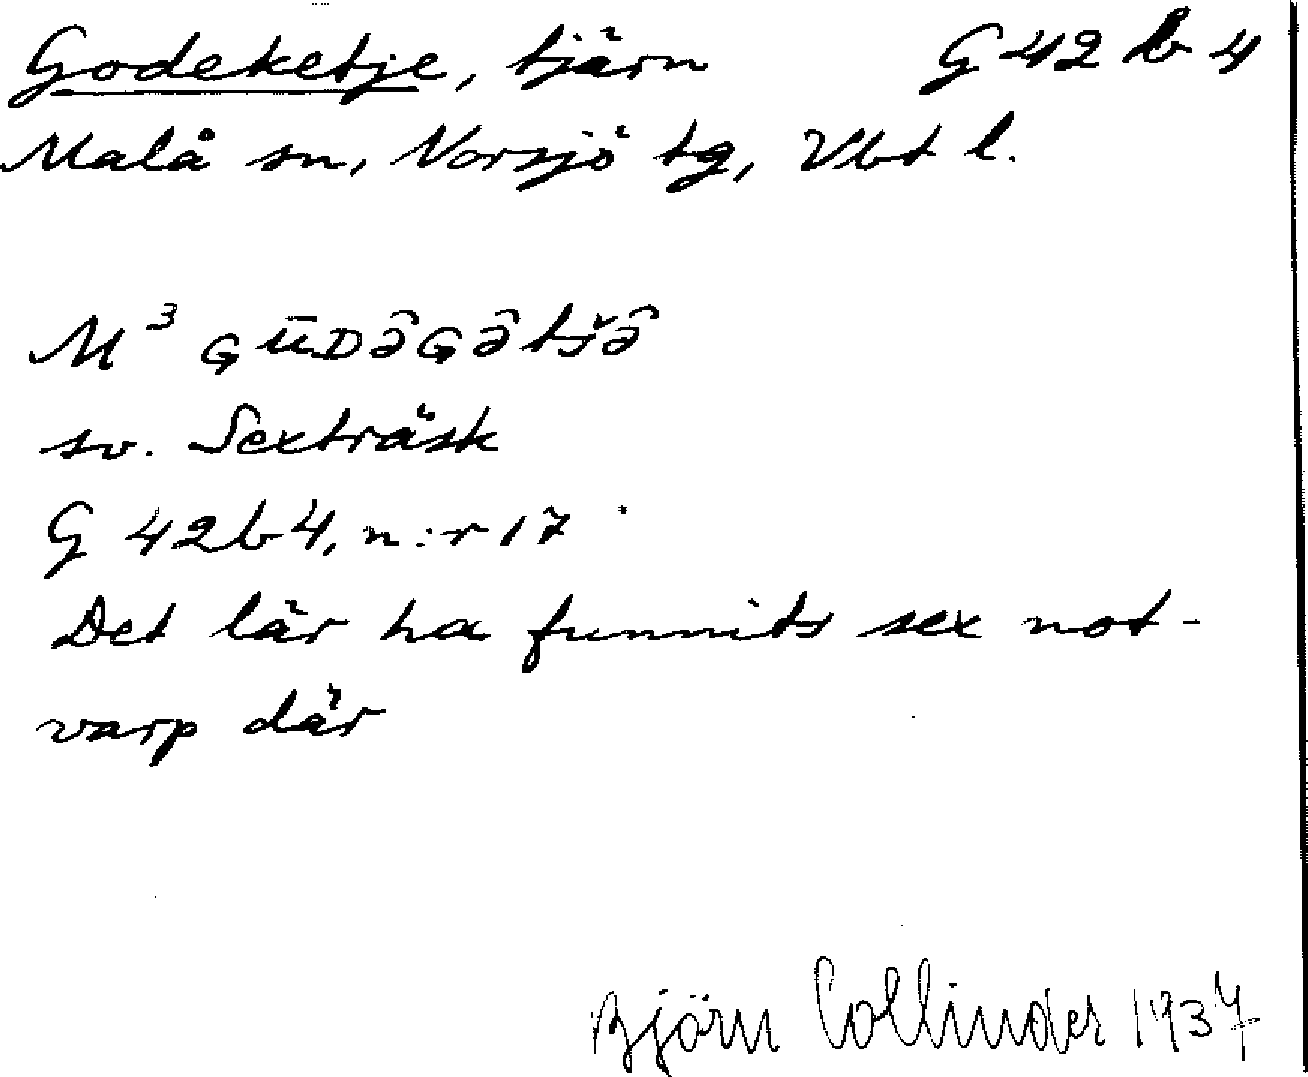 Godeketje, tjärn G 42 b 4
Malå sn, Norsjö tg, Vbt l.
M³ GŪDə̂Gə̂tš́ə̂
sv. Sexträsk
G 42b4, n:r 17
Det lär ha funnits sex not-
varp där
Björn Collinder 1937